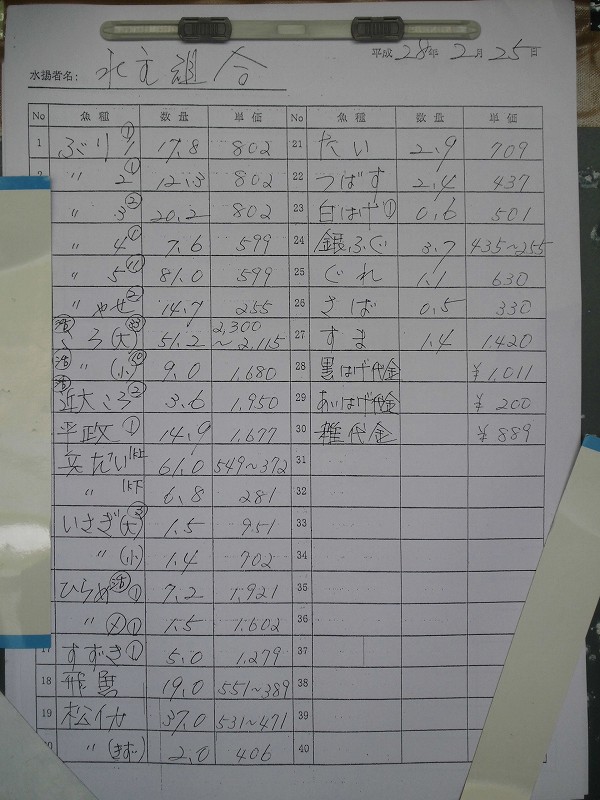 平成 28年 2月 25日
水揚者名: 水主組合
No 魚種 数量 単価 No 魚種 数量 単価
1 ぶり 1 ① 17.8 802 21 たい 2.9 709
〃 2 ① 12.3 802 22 つばす 2.4 437
〃 3 ② 20.2 802 23 白はげ ① 0.6 501
〃 4 ① 7.6 599 24 銀ふぐ 3.7 435~255
〃 5 81.0 599 25 ぐれ 1.1 630
〃 やせ ② 14.7 255 26 さば 0.5 330
ころ (大) 51.2 2,300~2,115 27 すま 1.4 1,420
〃 (小) 9.0 1,680 28 黒はげ代金 ¥1,011
近大ころ ② 3.6 1,950 29 あいはげ代金 ¥200
平政 ① 14.9 1,677 30 雑代金 ¥889
矢だい 1K上 61.0 549~372 31
〃 1K下 6.8 281 32
いさぎ (大) 1.5 951 33
〃 (小) 1.4 702 34
ひらめ 活 ① 7.2 1,921 35
〃 〆 ① 1.5 1,602 36
17 すずき ① 5.0 1,279 37
18 飛魚 19.0 551~389 38
19 松イカ 37.0 531~471 39
〃 (きず) 2.0 406 40